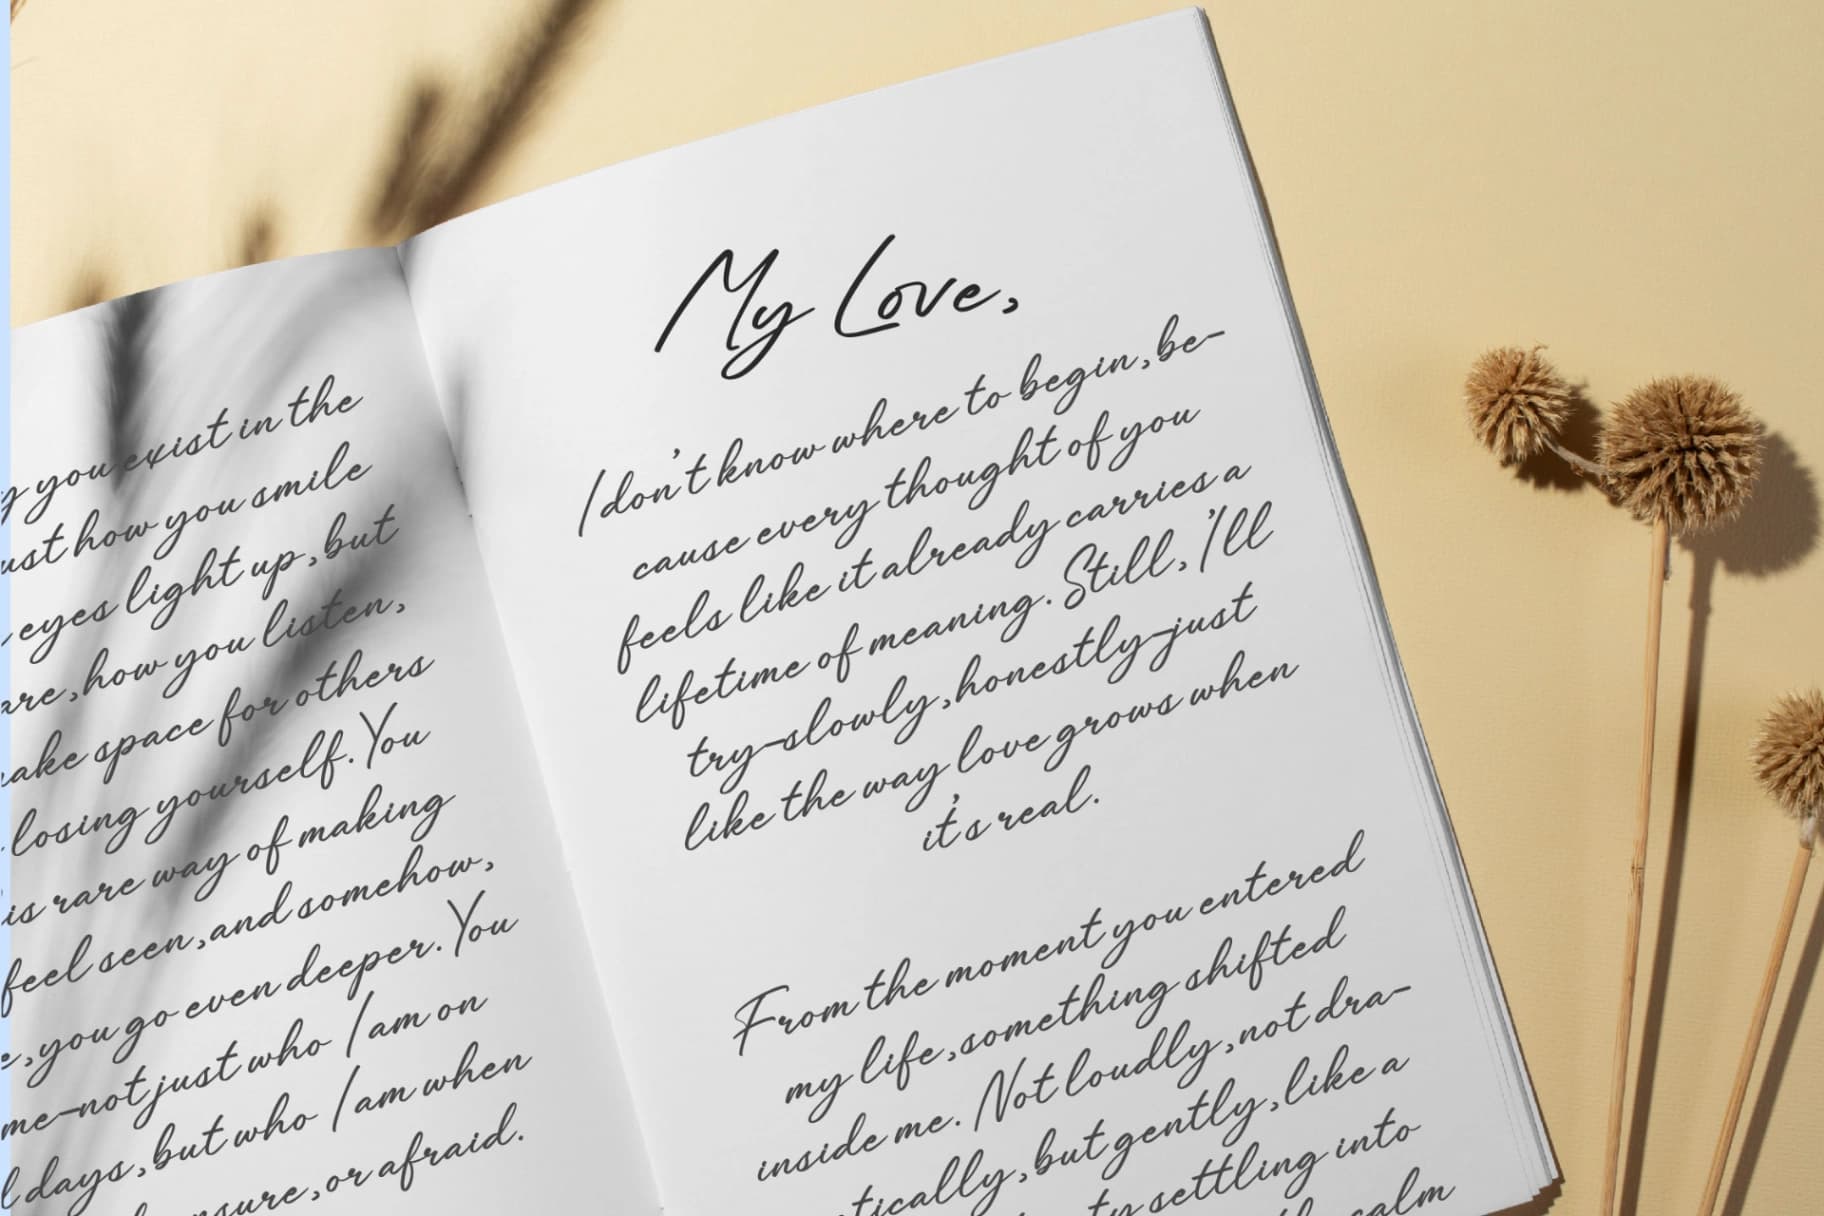 you exist in the
how you smile
eyes light up, but
how you listen,
space for others
losing yourself. You
is rare way of making
feel seen, and somehow,
you go even deeper. You
me-not just who I am on
days, but who I am when
or afraid.
My Love,
I don't know where to begin, be-
cause every thought of you
feels like it already carries a
lifetime of meaning. Still, I'll
try-slowly, honestly-just
like the way love grows when
it's real.
From the moment you entered
my life, something shifted
inside me. Not loudly, not dra-
tically, but gently, like a
settling into
calm